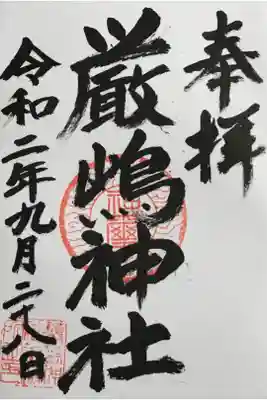 奉拝
厳嶋神社
令和二年九月二十八日